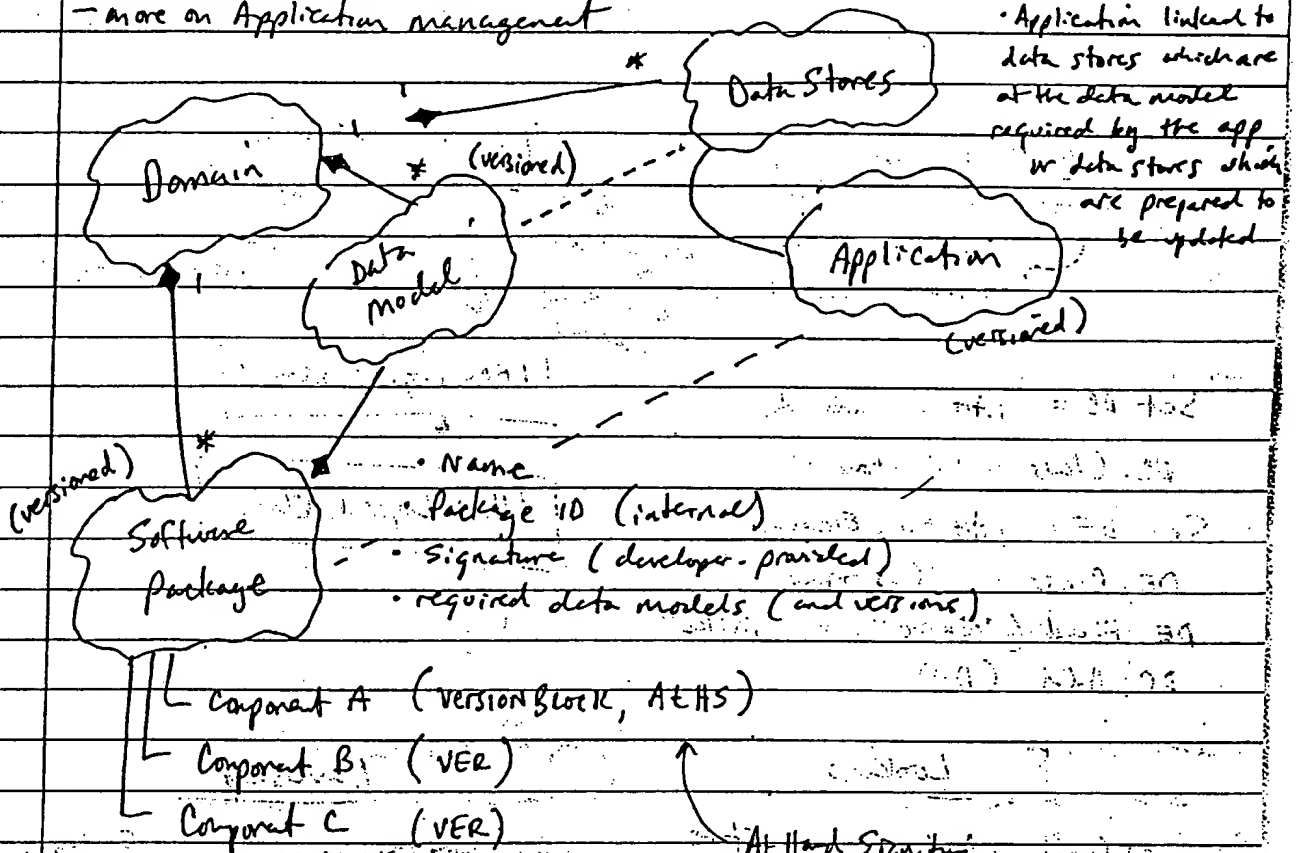 - more on Application management
• Application linked to
data stores which are
at the data model
required by the app
or data stores which
are prepared to
be updated
Data Stores
*
1
Domain
1
*
(versioned)
Data
Model
Application
(versioned)
1
*
(versioned)
Software
Package
• Name
• Package ID (internal)
• Signature (developer-provided)
• required data models (and versions)
Component A (VERSIONBLOCK, AtHS)
Component B (VER)
Component C (VER)
At Hand